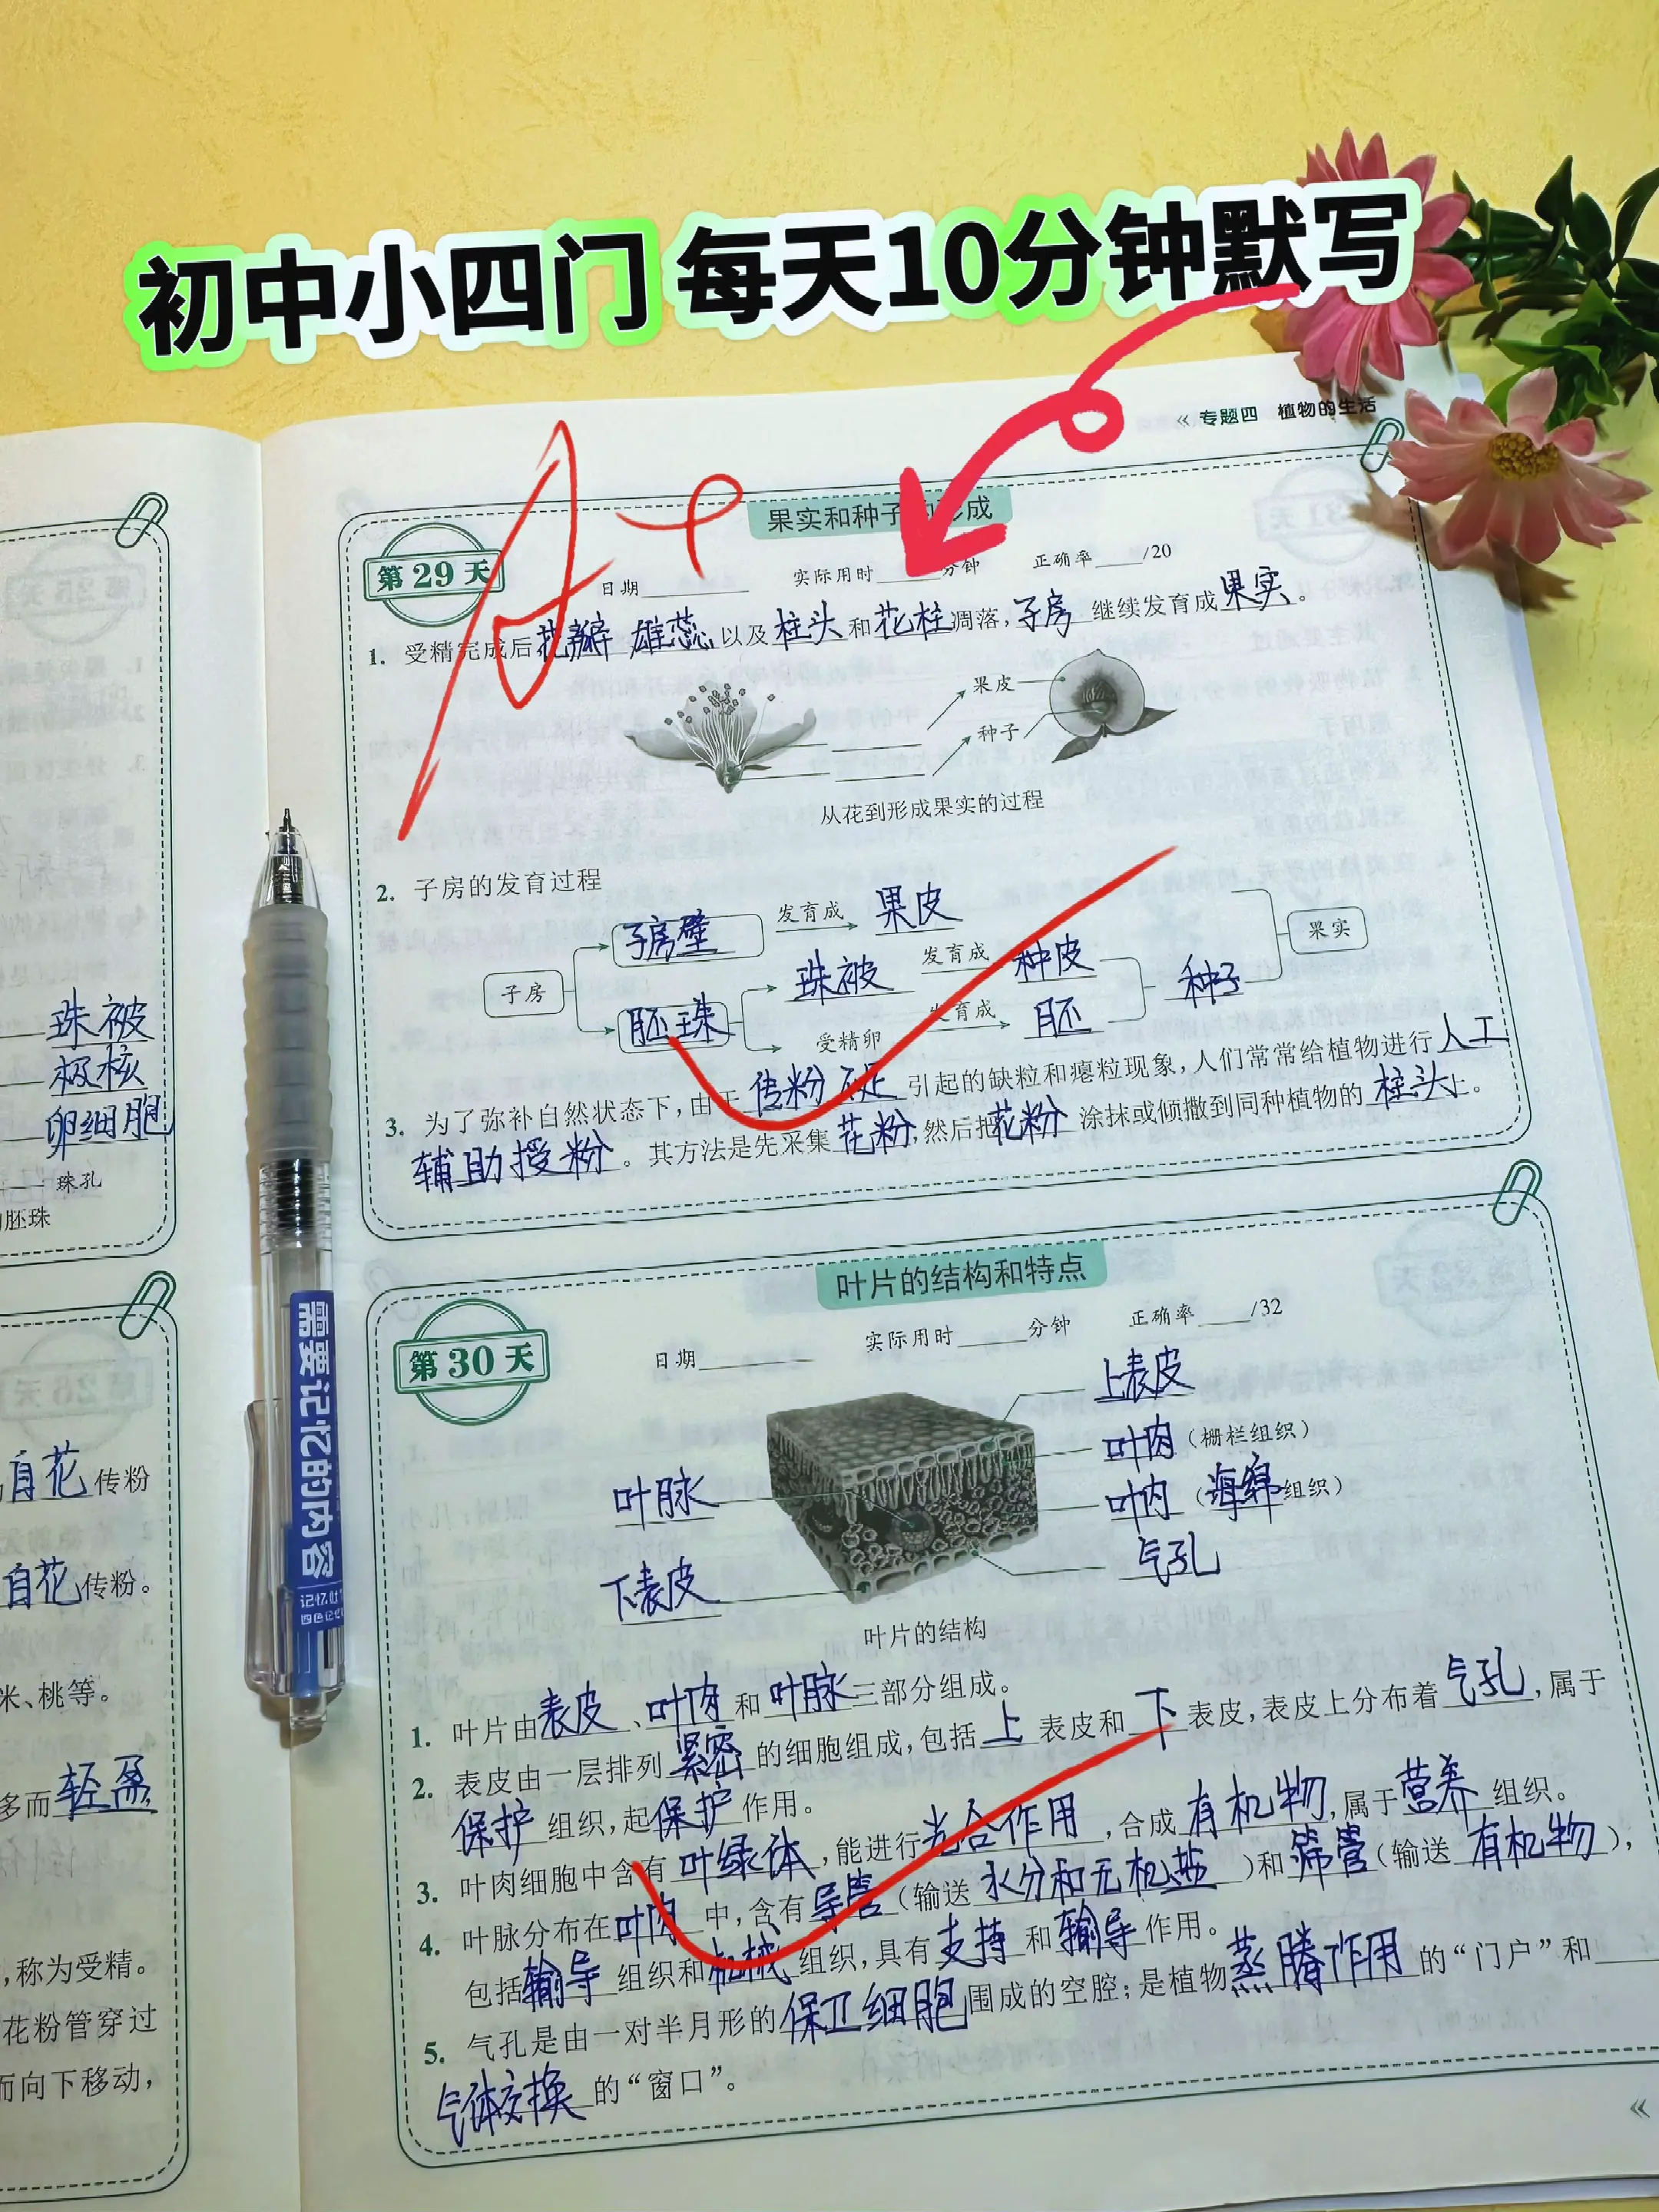 初中小四门 每天10分钟默写
« 专题四 植物的生活
果实和种子 形成
第29天
日期 实际用时 分钟 正确率 /20
A+
1. 受精完成后花瓣 雄蕊以及柱头和花柱凋落,子房继续发育成果实。
果皮
种子
从花到形成果实的过程
2. 子房的发育过程
子房壁 发育成 果皮
子房 珠被 发育成 种皮 种子 果实
胚珠 受精卵 发育成 胚
3. 为了弥补自然状态下,由于传粉不足引起的缺粒和瘪粒现象,人们常常给植物进行人工
辅助授粉。其方法是先采集花粉,然后把花粉涂抹或倾撒到同种植物的柱头上。
叶片的结构和特点
第30天
日期 实际用时 分钟 正确率 /32
上表皮
叶肉(栅栏组织)
叶脉 叶肉(海绵组织)
下表皮 气孔
叶片的结构
1. 叶片由表皮、叶肉和叶脉三部分组成。
2. 表皮由一层排列紧密的细胞组成,包括上表皮和下表皮,表皮上分布着气孔,属于
保护组织,起保护作用。
3. 叶肉细胞中含有叶绿体,能进行光合作用,合成有机物,属于营养组织。
4. 叶脉分布在叶肉中,含有导管(输送水分和无机盐)和筛管(输送有机物),
包括输导组织和机械组织,具有支持和输导作用。
5. 气孔是由一对半月形的保卫细胞围成的空腔;是植物蒸腾作用的“门户”和
气体交换的“窗口”。
«
珠被
极核
卵细胞
珠孔
胚珠
自花传粉
自花传粉。
米、桃等。
多而轻盈
,称为受精。
花粉管穿过
而向下移动,
需要记忆的内容